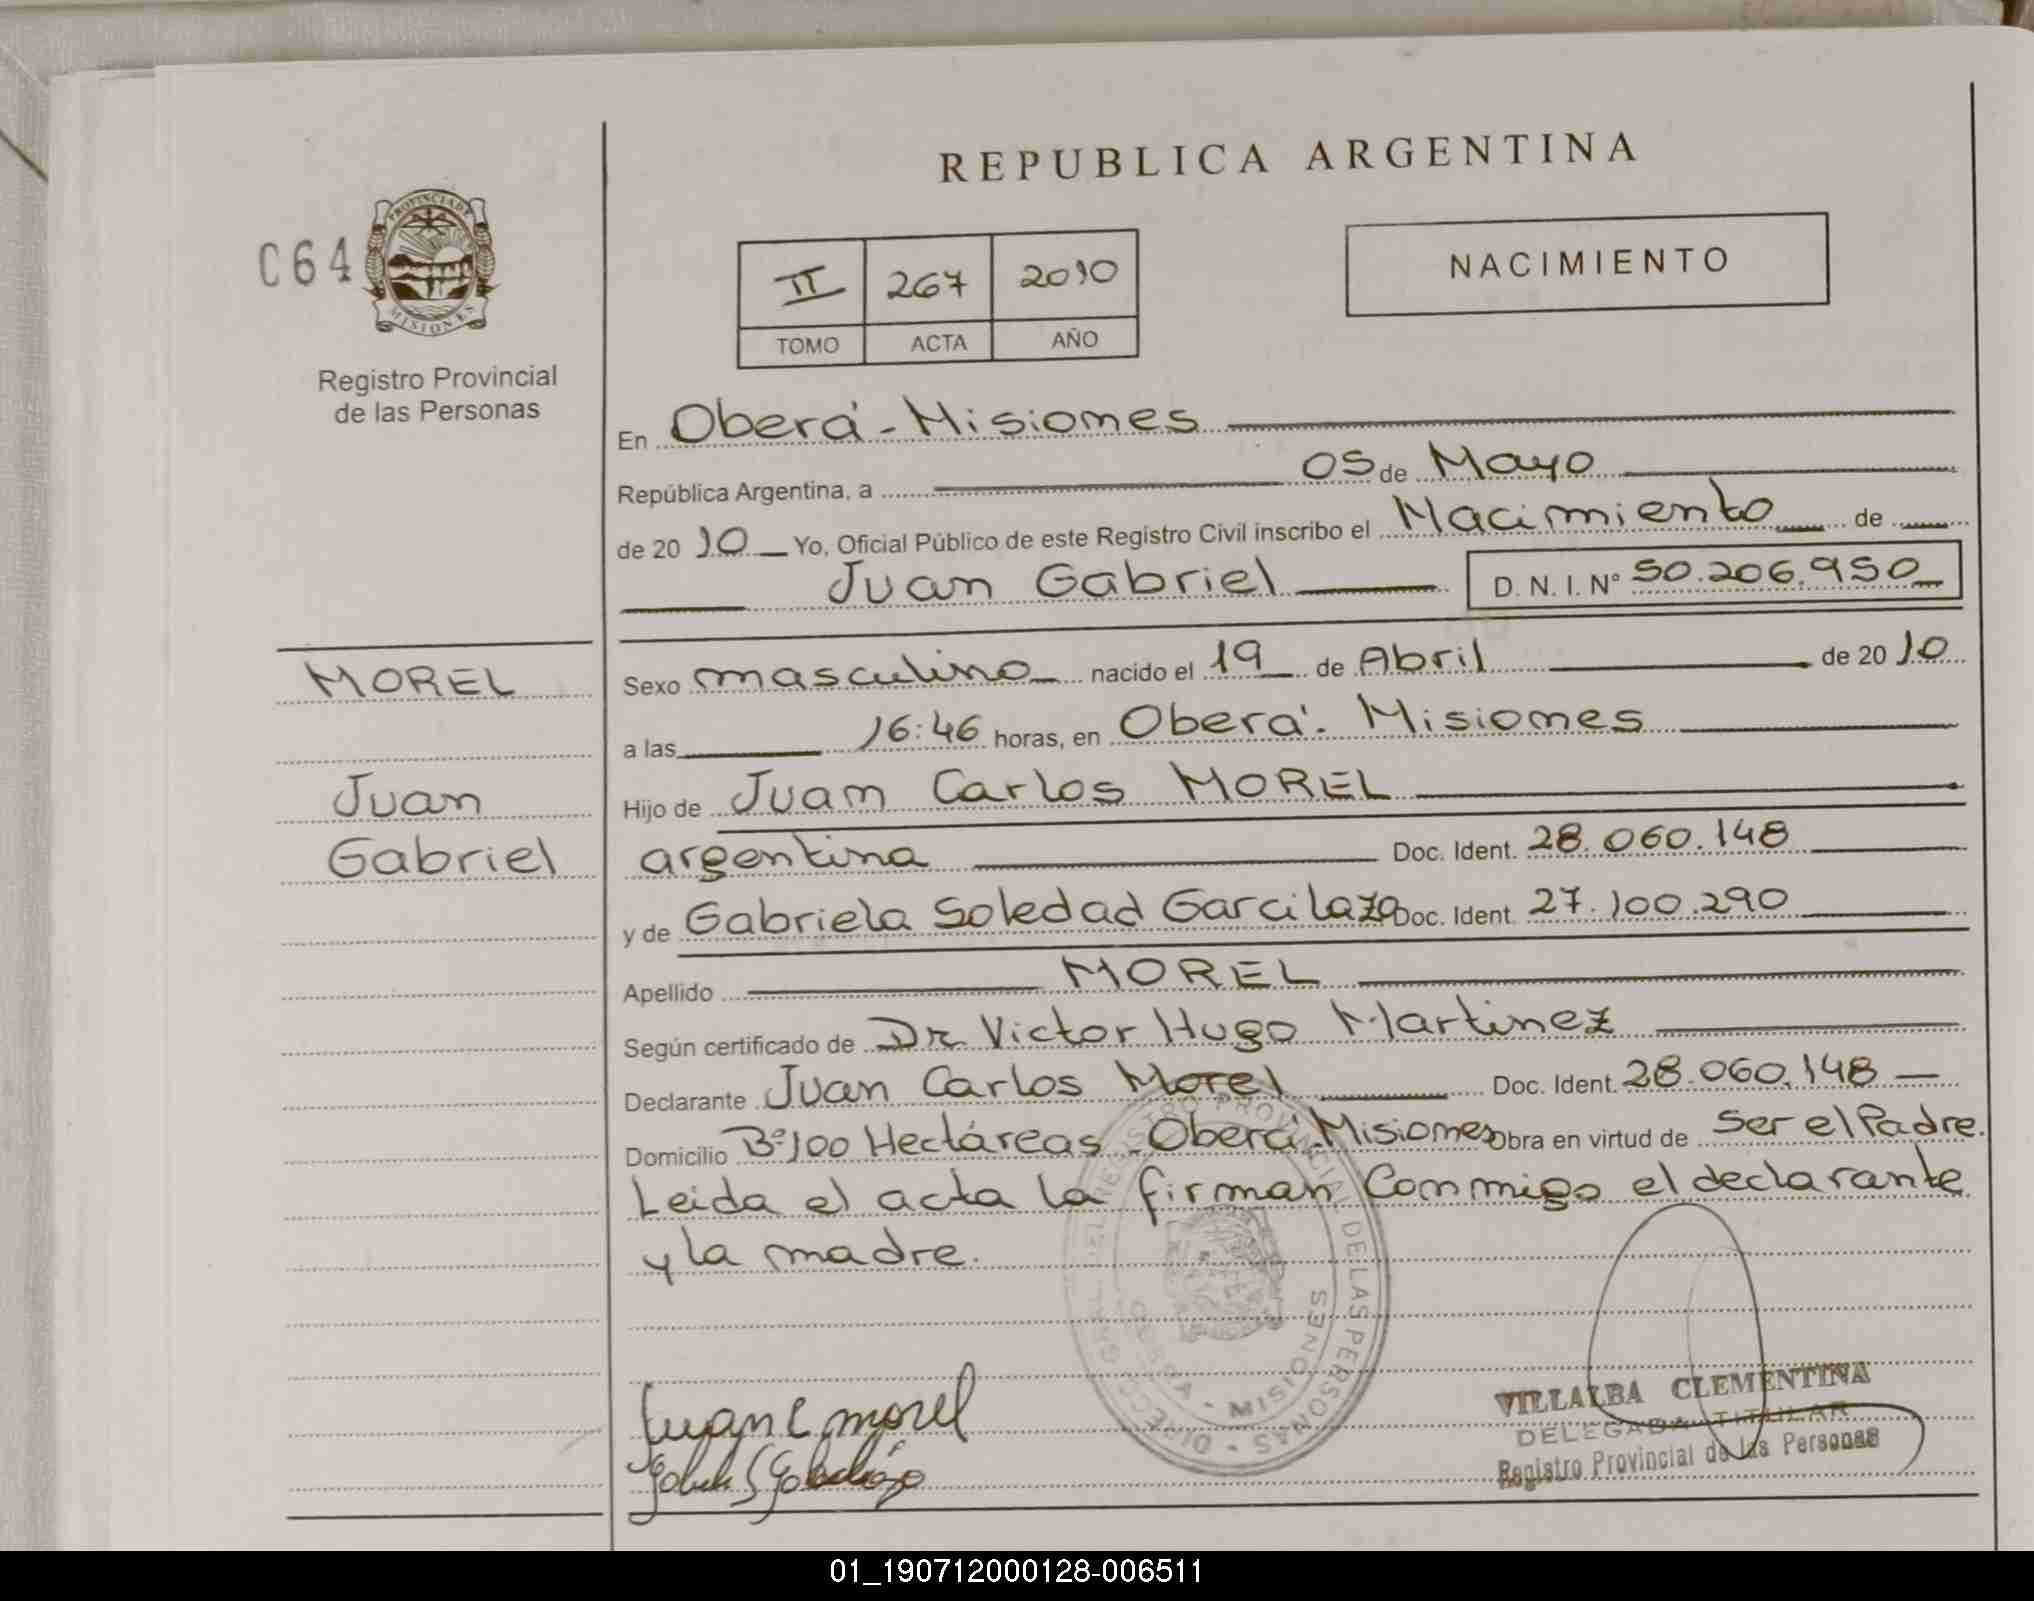 REPUBLICA ARGENTINA
C64
PROVINCIA DE
MISIONES
Registro Provincial
de las Personas
II 267 2010
TOMO ACTA AÑO
NACIMIENTO
En Oberá - Misiones
República Argentina, a 05 de Mayo
de 2010 Yo, Oficial Público de este Registro Civil inscribo el Nacimiento de
Juan Gabriel D. N. I. Nº 50.206.950
MOREL
Juan
Gabriel
Sexo masculino nacido el 19 de Abril de 2010
a las 16:46 horas, en Oberá - Misiones
Hijo de Juan Carlos MOREL
argentina Doc. Ident. 28.060.148
y de Gabriela Soledad Garcilazo Doc. Ident. 27.100.290
Apellido MOREL
Según certificado de Dr Victor Hugo Martinez
Declarante Juan Carlos Morel Doc. Ident. 28.060.148
Domicilio Bº 100 Hectáreas - Oberá - Misiones Obra en virtud de Ser el Padre.
Leida el acta la firman Conmigo el declarante
y la madre.
REGISTRO PROVINCIAL DE LAS PERSONAS
MISIONES
Juan C morel
VILLALBA CLEMENTINA
DELEGADA TITULAR
Registro Provincial de las Personas
01_190712000128-006511